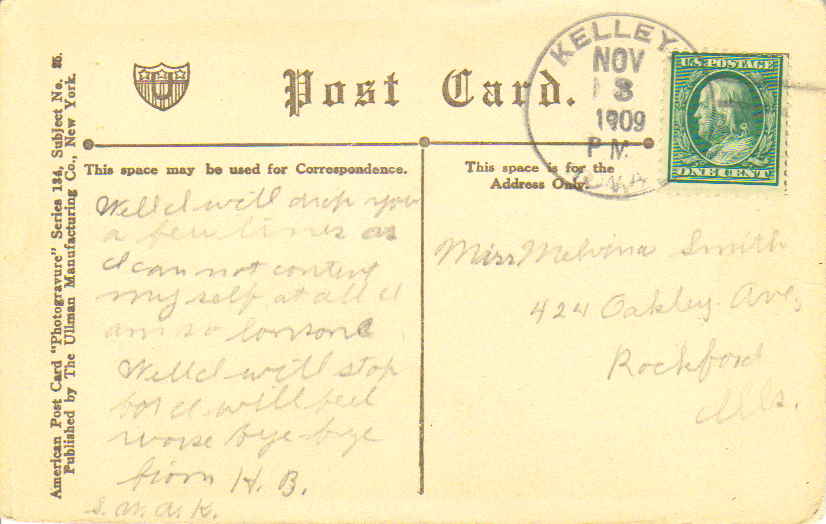 Post Card.
KELLEY
NOV
3
1909
P.M.
IOWA
U.S. POSTAGE
ONE CENT
This space may be used for Correspondence.
This space is for the
Address Only.
Well I will drop you
a few lines as
I can not content
my self at all I
am so lonsone
Well I will stop
for I will feel
worse bye-bye
from H. B.
S. W. A. K.
Miss Melvina Smith
424 Oakley Ave,
Rockford
Ills.
American Post Card "Photogravure" Series 134, Subject No. 25.
Published by The Ullman Manufacturing Co., New York.